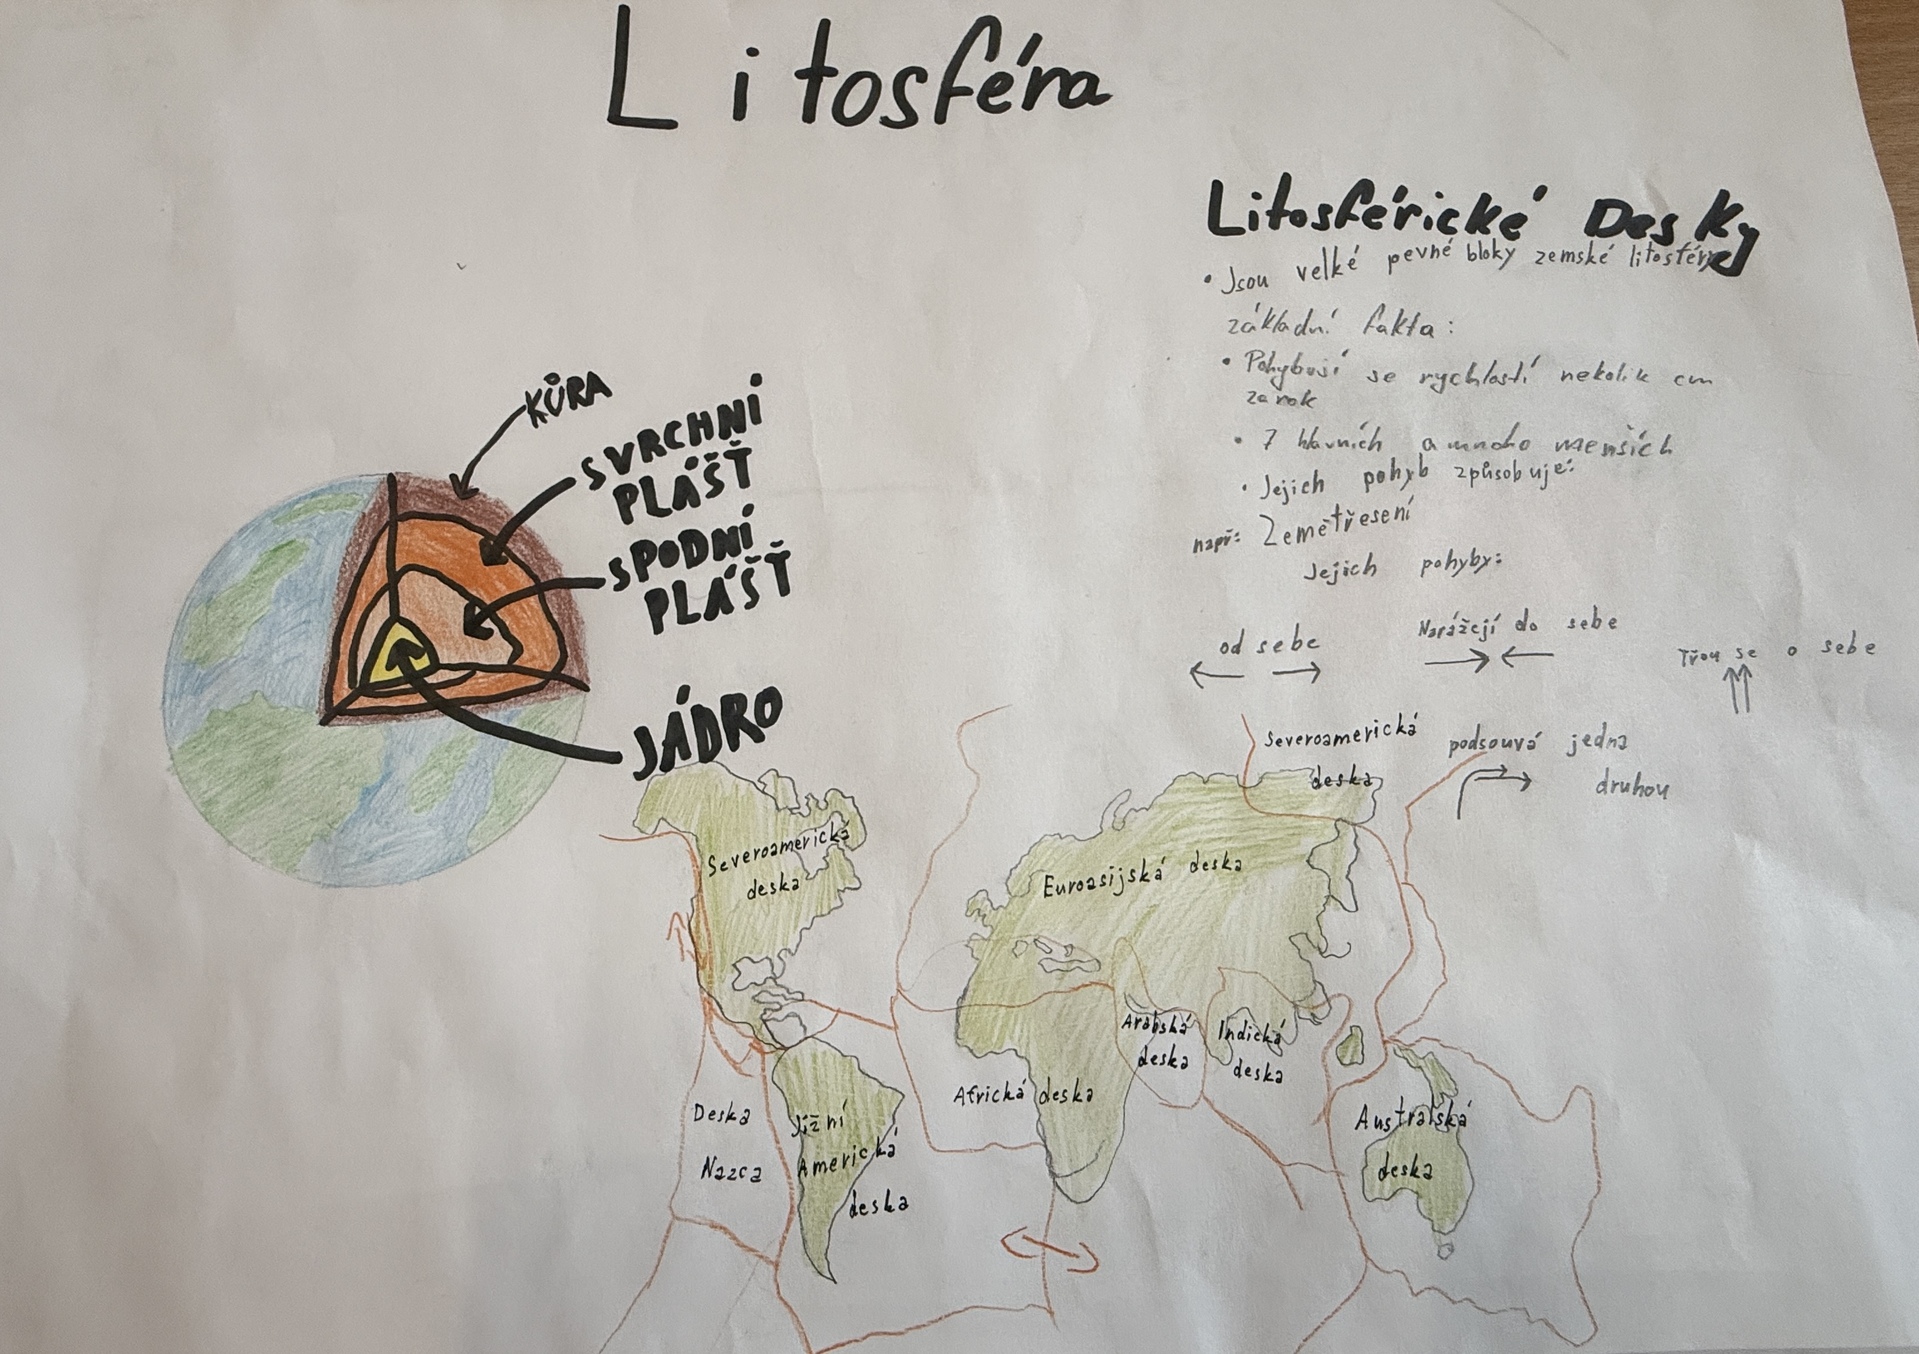 Litosféra
Litosférické Desky
• Jsou velké pevné bloky zemské litosféry
základní fakta:
• Pohybusí se rychlostí nekolik cm
za rok
• 7 hlavních a mnoho menších
• Jejich pohyb způsobuje:
např: Zemětřesení
Jejich pohyby:
od sebe
Narážejí do sebe
Třou se o sebe
podsouvá jedna
druhou
KŮRA
SVRCHNÍ
PLÁŠŤ
SPODNÍ
PLÁŠŤ
JÁDRO
Severoamerická
deska
Severoamerická
deska
Euroasijská deska
Arabská
deska
Indická
deska
Africká deska
Deska
Nazca
Jižní
Americká
deska
Australská
deska